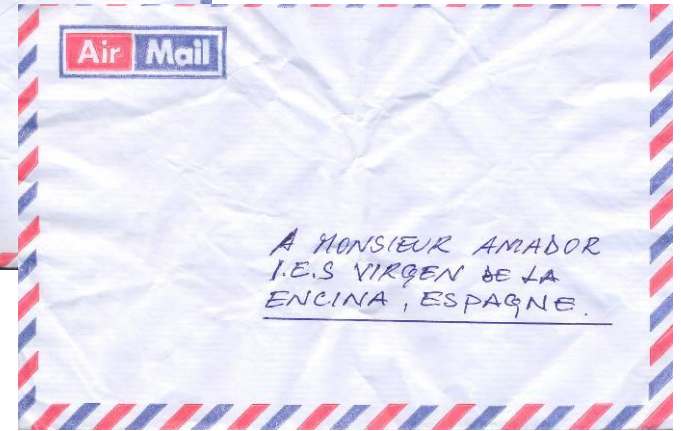 Air Mail
A MONSIEUR AMADOR
I.E.S VIRGEN DE LA
ENCINA, ESPAGNE.